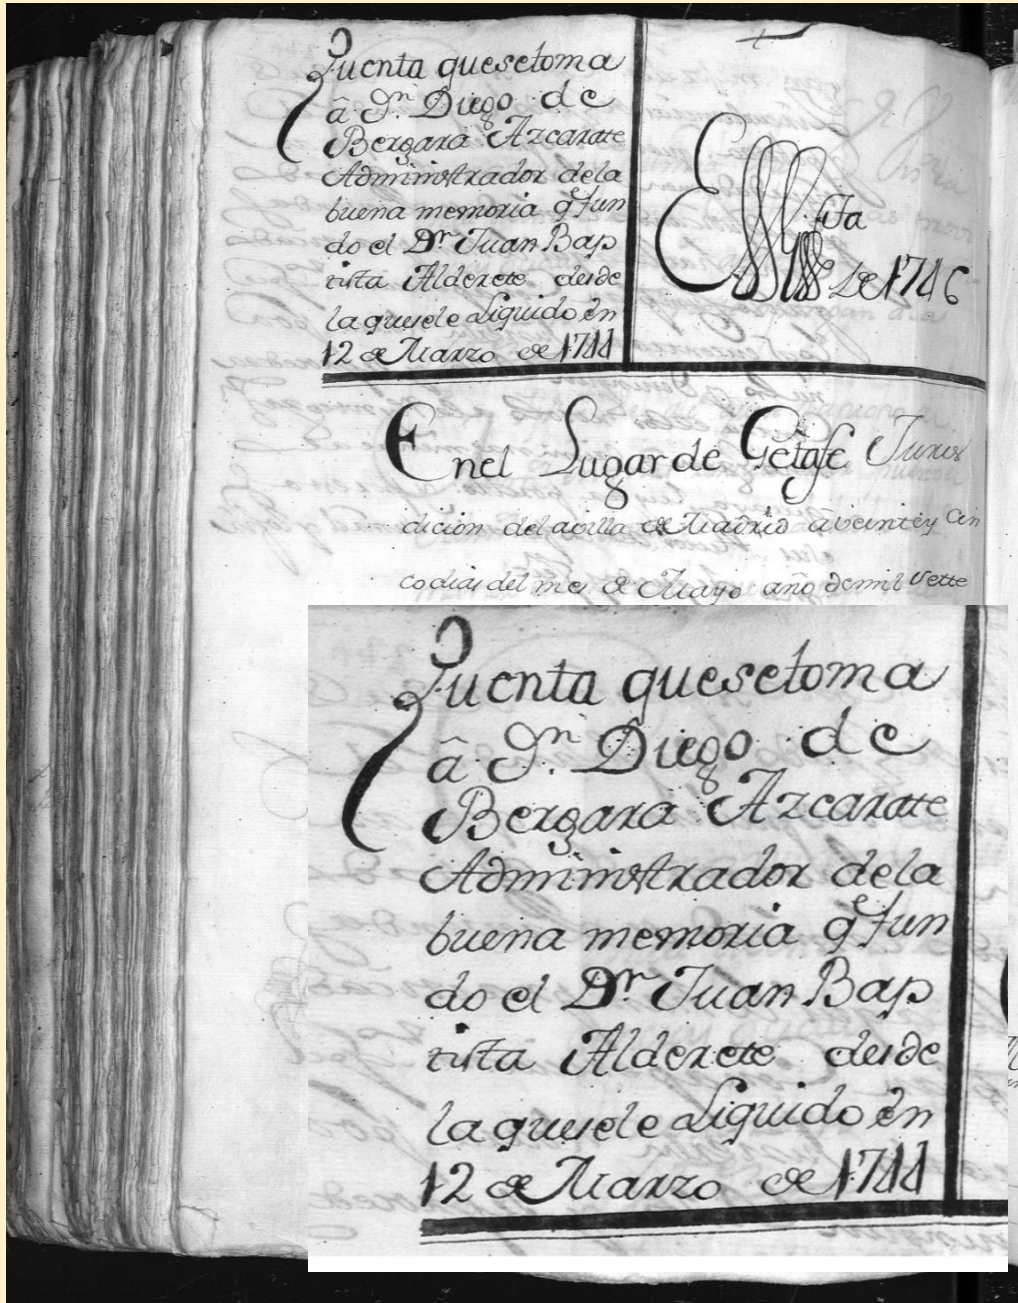 Quenta que se toma
â Dn Diego de
Bergara Azcarate
Administrador de la
buena memoria qe fun
do el Dr Juan Bap
tista Alderete desde
la que se le Liquido en
12 de Marzo de 1744
sita
de 1746
En el Lugar de Getafe Juris
dicion de la villa de Madrid â veinte y Cin
co dias del mes de Mayo año de mil Sette
Quenta que se toma
â Dn Diego de
Bergara Azcarate
Administrador de la
buena memoria qe fun
do el Dr Juan Bap
tista Alderete desde
la que se le Liquido en
12 de Marzo de 1744